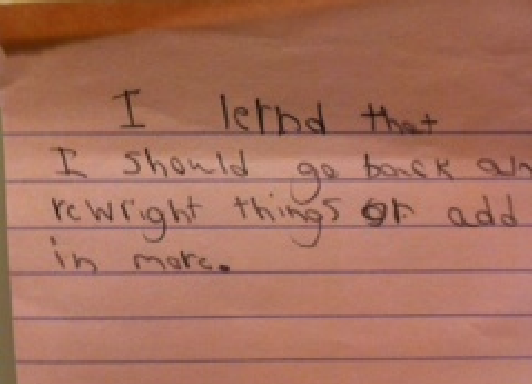 I lernd that
I should go back an
rewright things or add
in more.